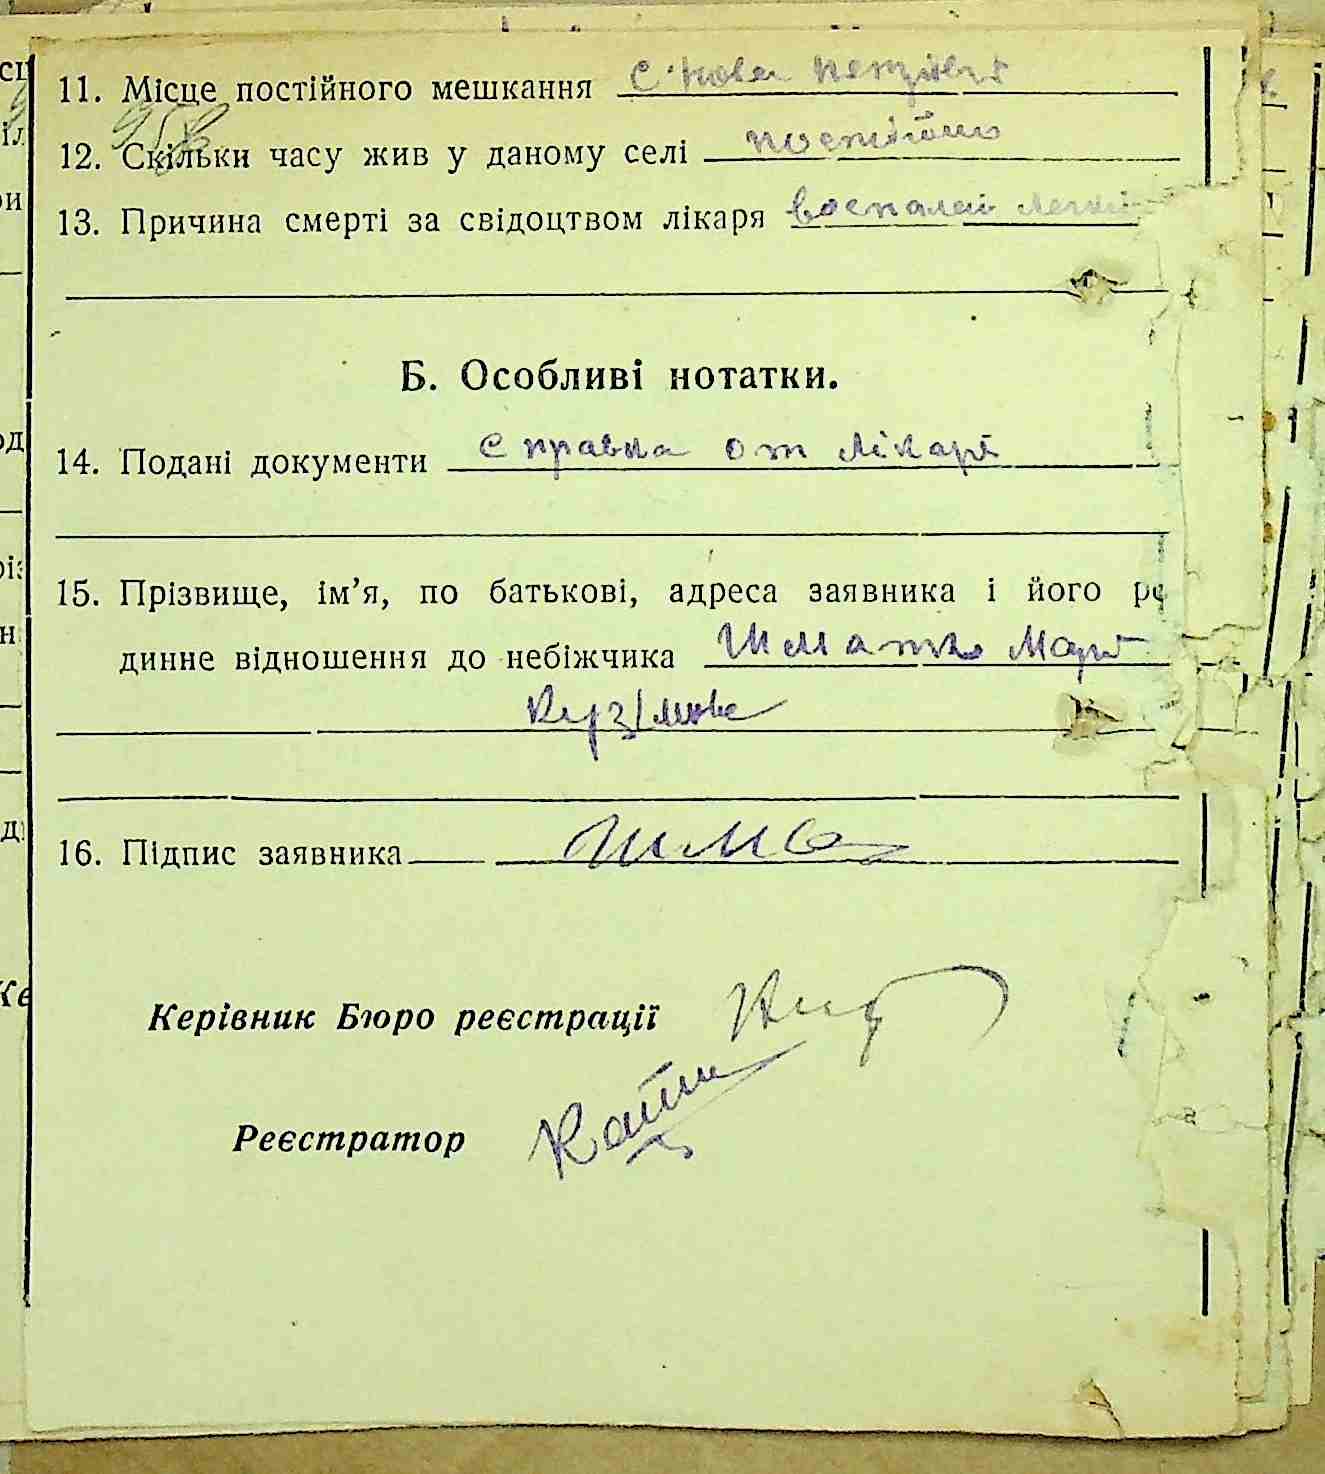 11. Місце постійного мешкання с. Нова
12. Скільки часу жив у даному селі постійно
13. Причина смерті за свідоцтвом лікаря воспалей легкі
Б. Особливі нотатки.
14. Подані документи справка от лікаря
15. Прізвище, ім’я, по батькові, адреса заявника і його ро
динне відношення до небіжчика Шматко Мари
16. Підпис заявника
Керівник Бюро реєстрації
Реєстратор